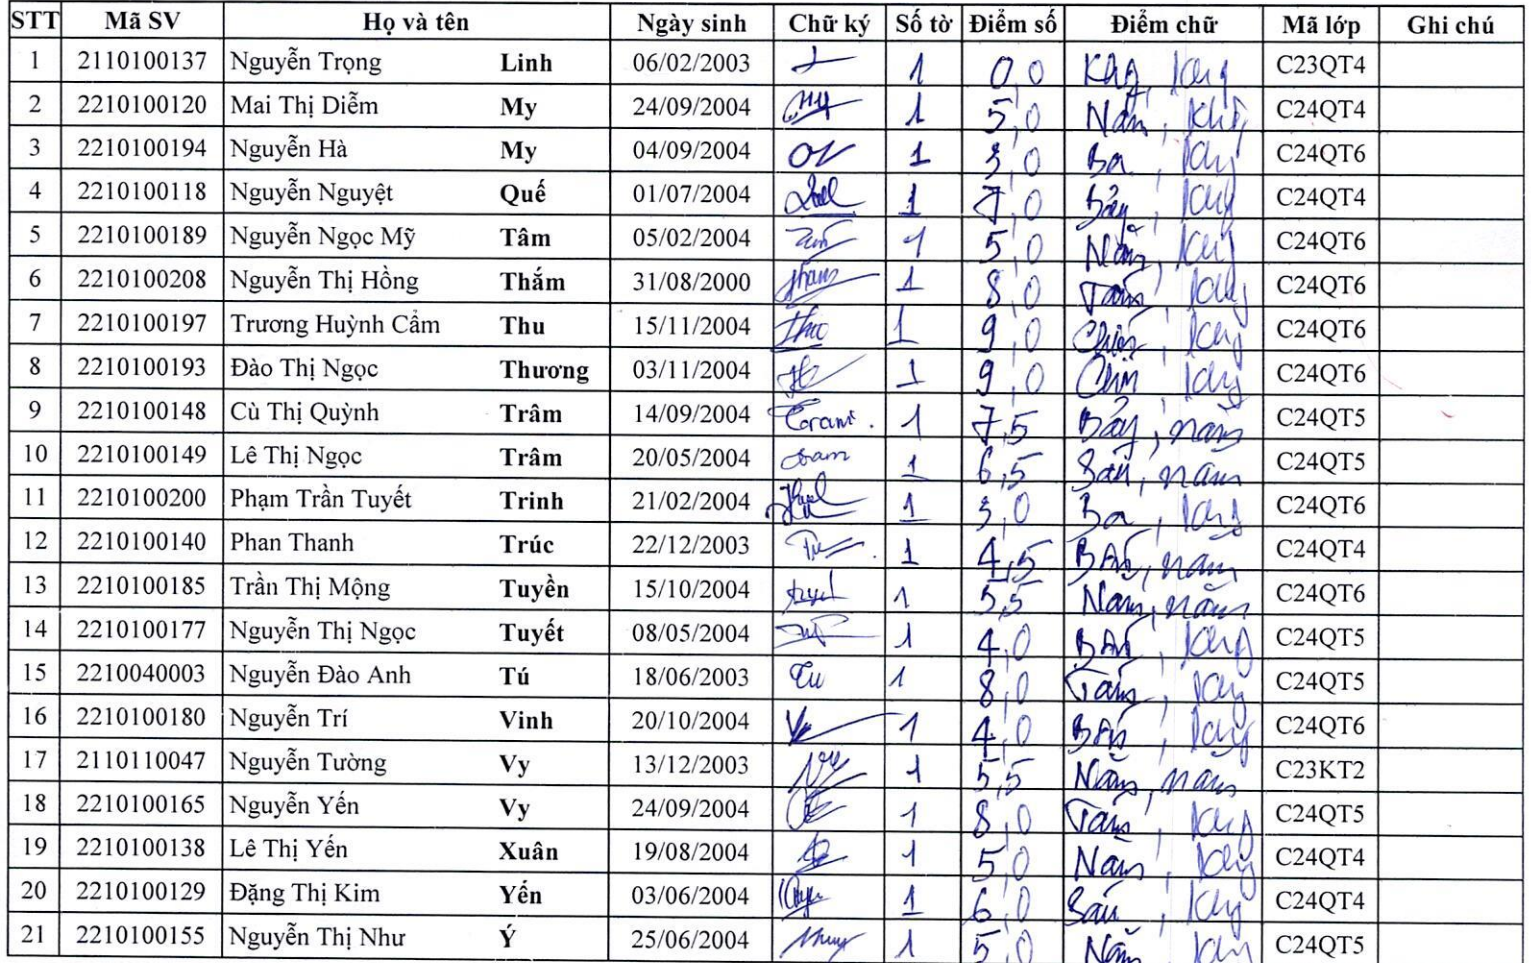 STT Mã SV Họ và tên Ngày sinh Chữ ký Số tờ Điểm số Điểm chữ Mã lớp Ghi chú
1 2110100137 Nguyễn Trọng Linh 06/02/2003 1 0,0 C23QT4
2 2210100120 Mai Thị Diễm My 24/09/2004 My 1 5,0 Năm, C24QT4
3 2210100194 Nguyễn Hà My 04/09/2004 1 3,0 Ba, C24QT6
4 2210100118 Nguyễn Nguyệt Quế 01/07/2004 1 7,0 Bảy, C24QT4
5 2210100189 Nguyễn Ngọc Mỹ Tâm 05/02/2004 1 5,0 Năm, C24QT6
6 2210100208 Nguyễn Thị Hồng Thắm 31/08/2000 1 8,0 Tám, C24QT6
7 2210100197 Trương Huỳnh Cẩm Thu 15/11/2004 Thu 1 9,0 Chín, C24QT6
8 2210100193 Đào Thị Ngọc Thương 03/11/2004 1 9,0 Chín, C24QT6
9 2210100148 Cù Thị Quỳnh Trâm 14/09/2004 1 7,5 Bảy, năm C24QT5
10 2210100149 Lê Thị Ngọc Trâm 20/05/2004 1 6,5 Sáu, năm C24QT5
11 2210100200 Phạm Trần Tuyết Trinh 21/02/2004 1 3,0 Ba, C24QT6
12 2210100140 Phan Thanh Trúc 22/12/2003 1 4,5 Bốn, năm C24QT4
13 2210100185 Trần Thị Mộng Tuyền 15/10/2004 1 5,5 Năm, năm C24QT6
14 2210100177 Nguyễn Thị Ngọc Tuyết 08/05/2004 1 4,0 Bốn, C24QT5
15 2210040003 Nguyễn Đào Anh Tú 18/06/2003 Tu 1 8,0 Tám, C24QT5
16 2210100180 Nguyễn Trí Vinh 20/10/2004 1 4,0 Bốn, C24QT6
17 2110110047 Nguyễn Tường Vy 13/12/2003 1 5,5 Năm, năm C23KT2
18 2210100165 Nguyễn Yến Vy 24/09/2004 1 8,0 Tám, C24QT5
19 2210100138 Lê Thị Yến Xuân 19/08/2004 1 5,0 Năm, C24QT4
20 2210100129 Đặng Thị Kim Yến 03/06/2004 1 6,0 Sáu, C24QT4
21 2210100155 Nguyễn Thị Như Ý 25/06/2004 1 5,0 Năm C24QT5